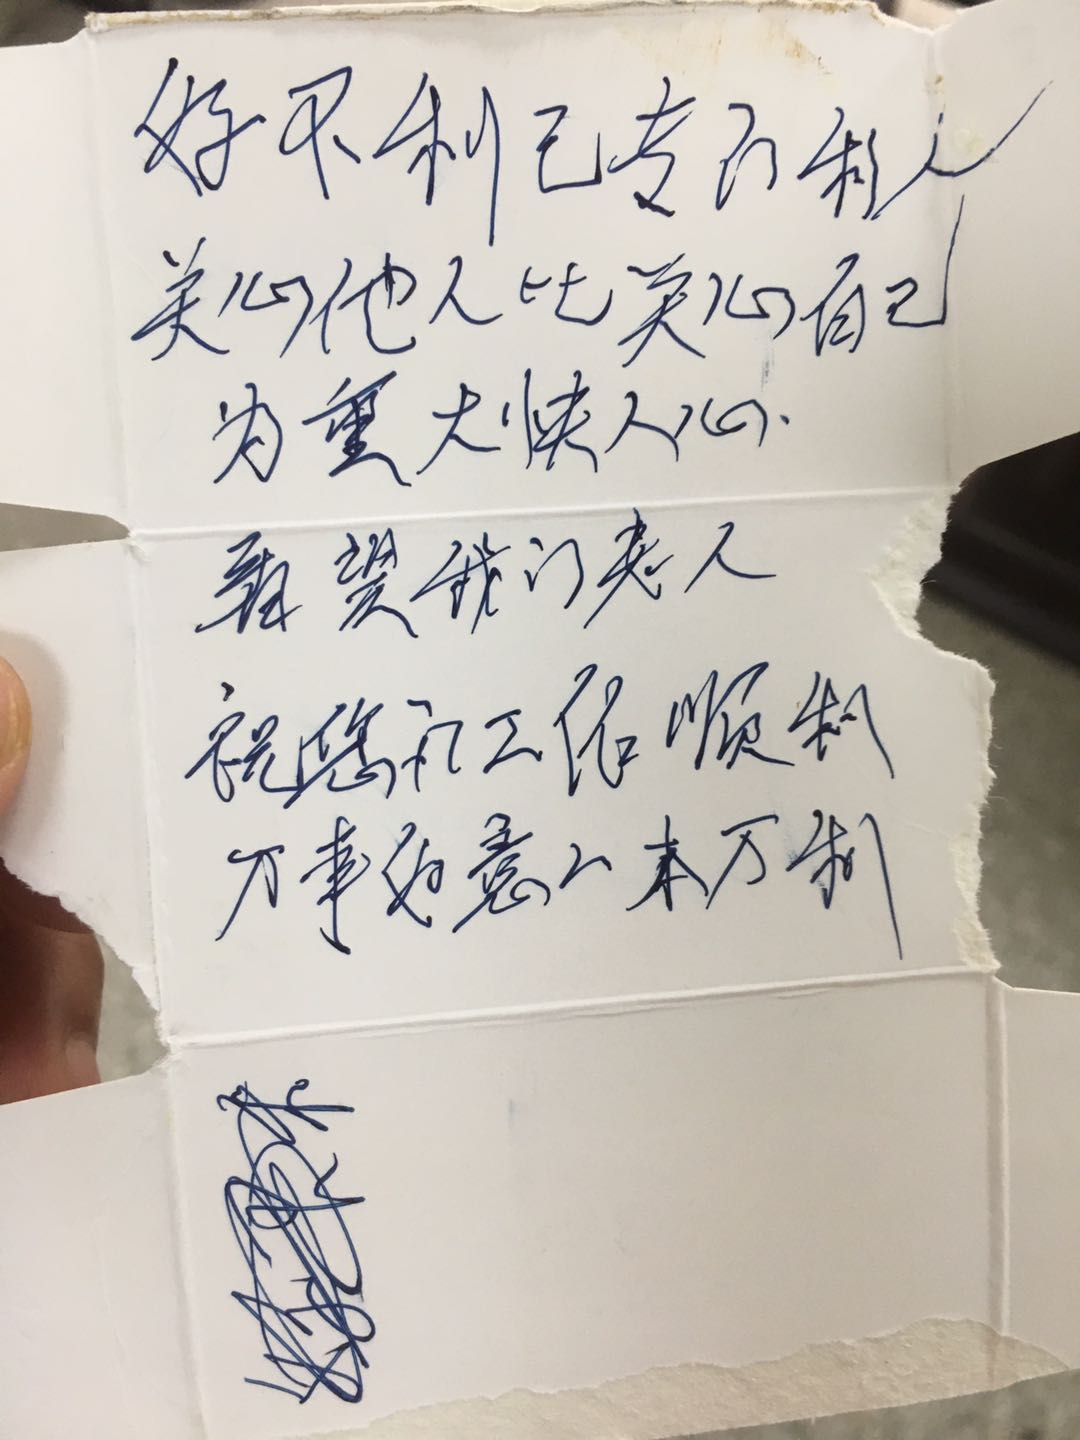 好不利己专门利人
关心他人比关心自己
为重大快人心.
看望我门老人
祝您们工作顺利
万事如意一本万利